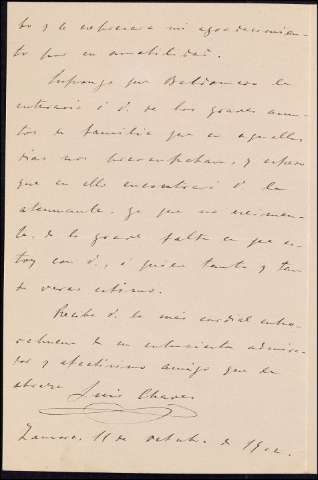 to y le expresara mi agradecimien-
to por su amabilidad.
Supongo que Baldomero le
enteraria á V. de los graves asun-
tos de familia que en aquellos
dias nos preocupaban, y espero
que en ello encontrará V. la
atenuante, ya que no eximen-
te, de la grande falta en que es-
toy con V., á quien tanto y tan
de veras estimo.
Recibe V. la más cordial enho-
rabuena de su entusiasta admira-
dor y afectísimo amigo que le
abraza
Luis Chaves
Zamora, 11 de octubre de 1902.